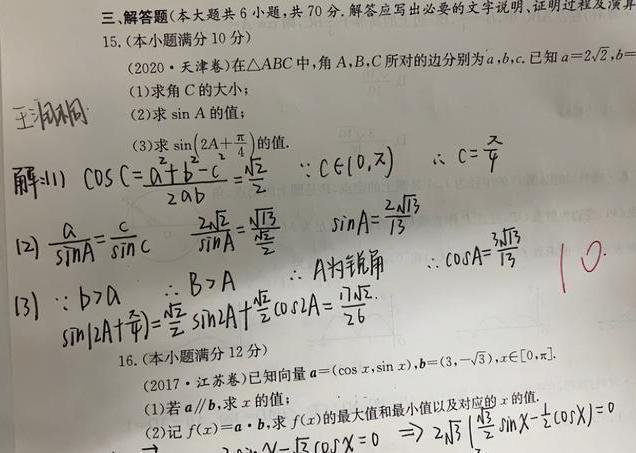 三、解答题(本大题共6小题,共70分.解答应写出必要的文字说明、证明过程及演算
15.(本小题满分10分)
(2020·天津卷)在△ABC中,角A,B,C所对的边分别为a,b,c.已知a=2√2,b=
(1)求角C的大小;
(2)求sin A的值;
(3)求sin(2A+π/4)的值.
解:(1) cosC=(a²+b²-c²)/2ab=√2/2 ∵C∈(0,π) ∴C=π/4
(2) a/sinA=c/sinC 2√2/sinA=√13/(√2/2) sinA=2√13/13
(3) ∵b>a ∴B>A ∴A为锐角 ∴cosA=3√13/13
sin(2A+π/4)=√2/2 sin2A+√2/2 cos2A=17√2/26.
10.
16.(本小题满分12分)
(2017·江苏卷)已知向量a=(cos x,sin x),b=(3,-√3),x∈[0,π].
(1)若a∥b,求x的值;
(2)记f(x)=a·b,求f(x)的最大值和最小值以及对应的x的值.
sinX-√3cosX=0 ⇒ 2√3(√3/2 sinX-1/2 cosX)=0